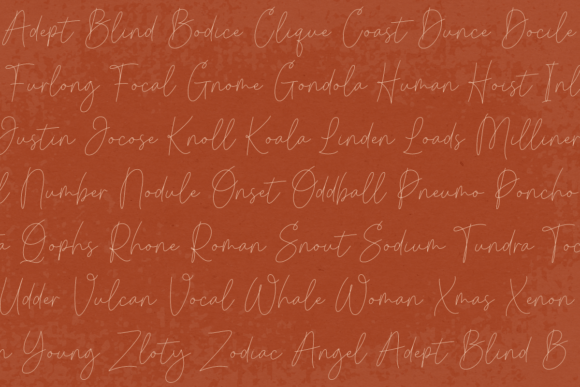 Adept Blind Bodice Clique Coast Dunce Docile
Furlong Focal Gnome Gondola Human Hoist Inl
Justin Jocose Knoll Koala Linden Loads Milliner
l Number Nodule Onset Oddball Pneumo Poncho
a Qophs Rhone Roman Snout Sodium Tundra Toc
Udder Vulcan Vocal Whale Woman Xmas Xenon
n Young Zloty Zodiac Angel Adept Blind B